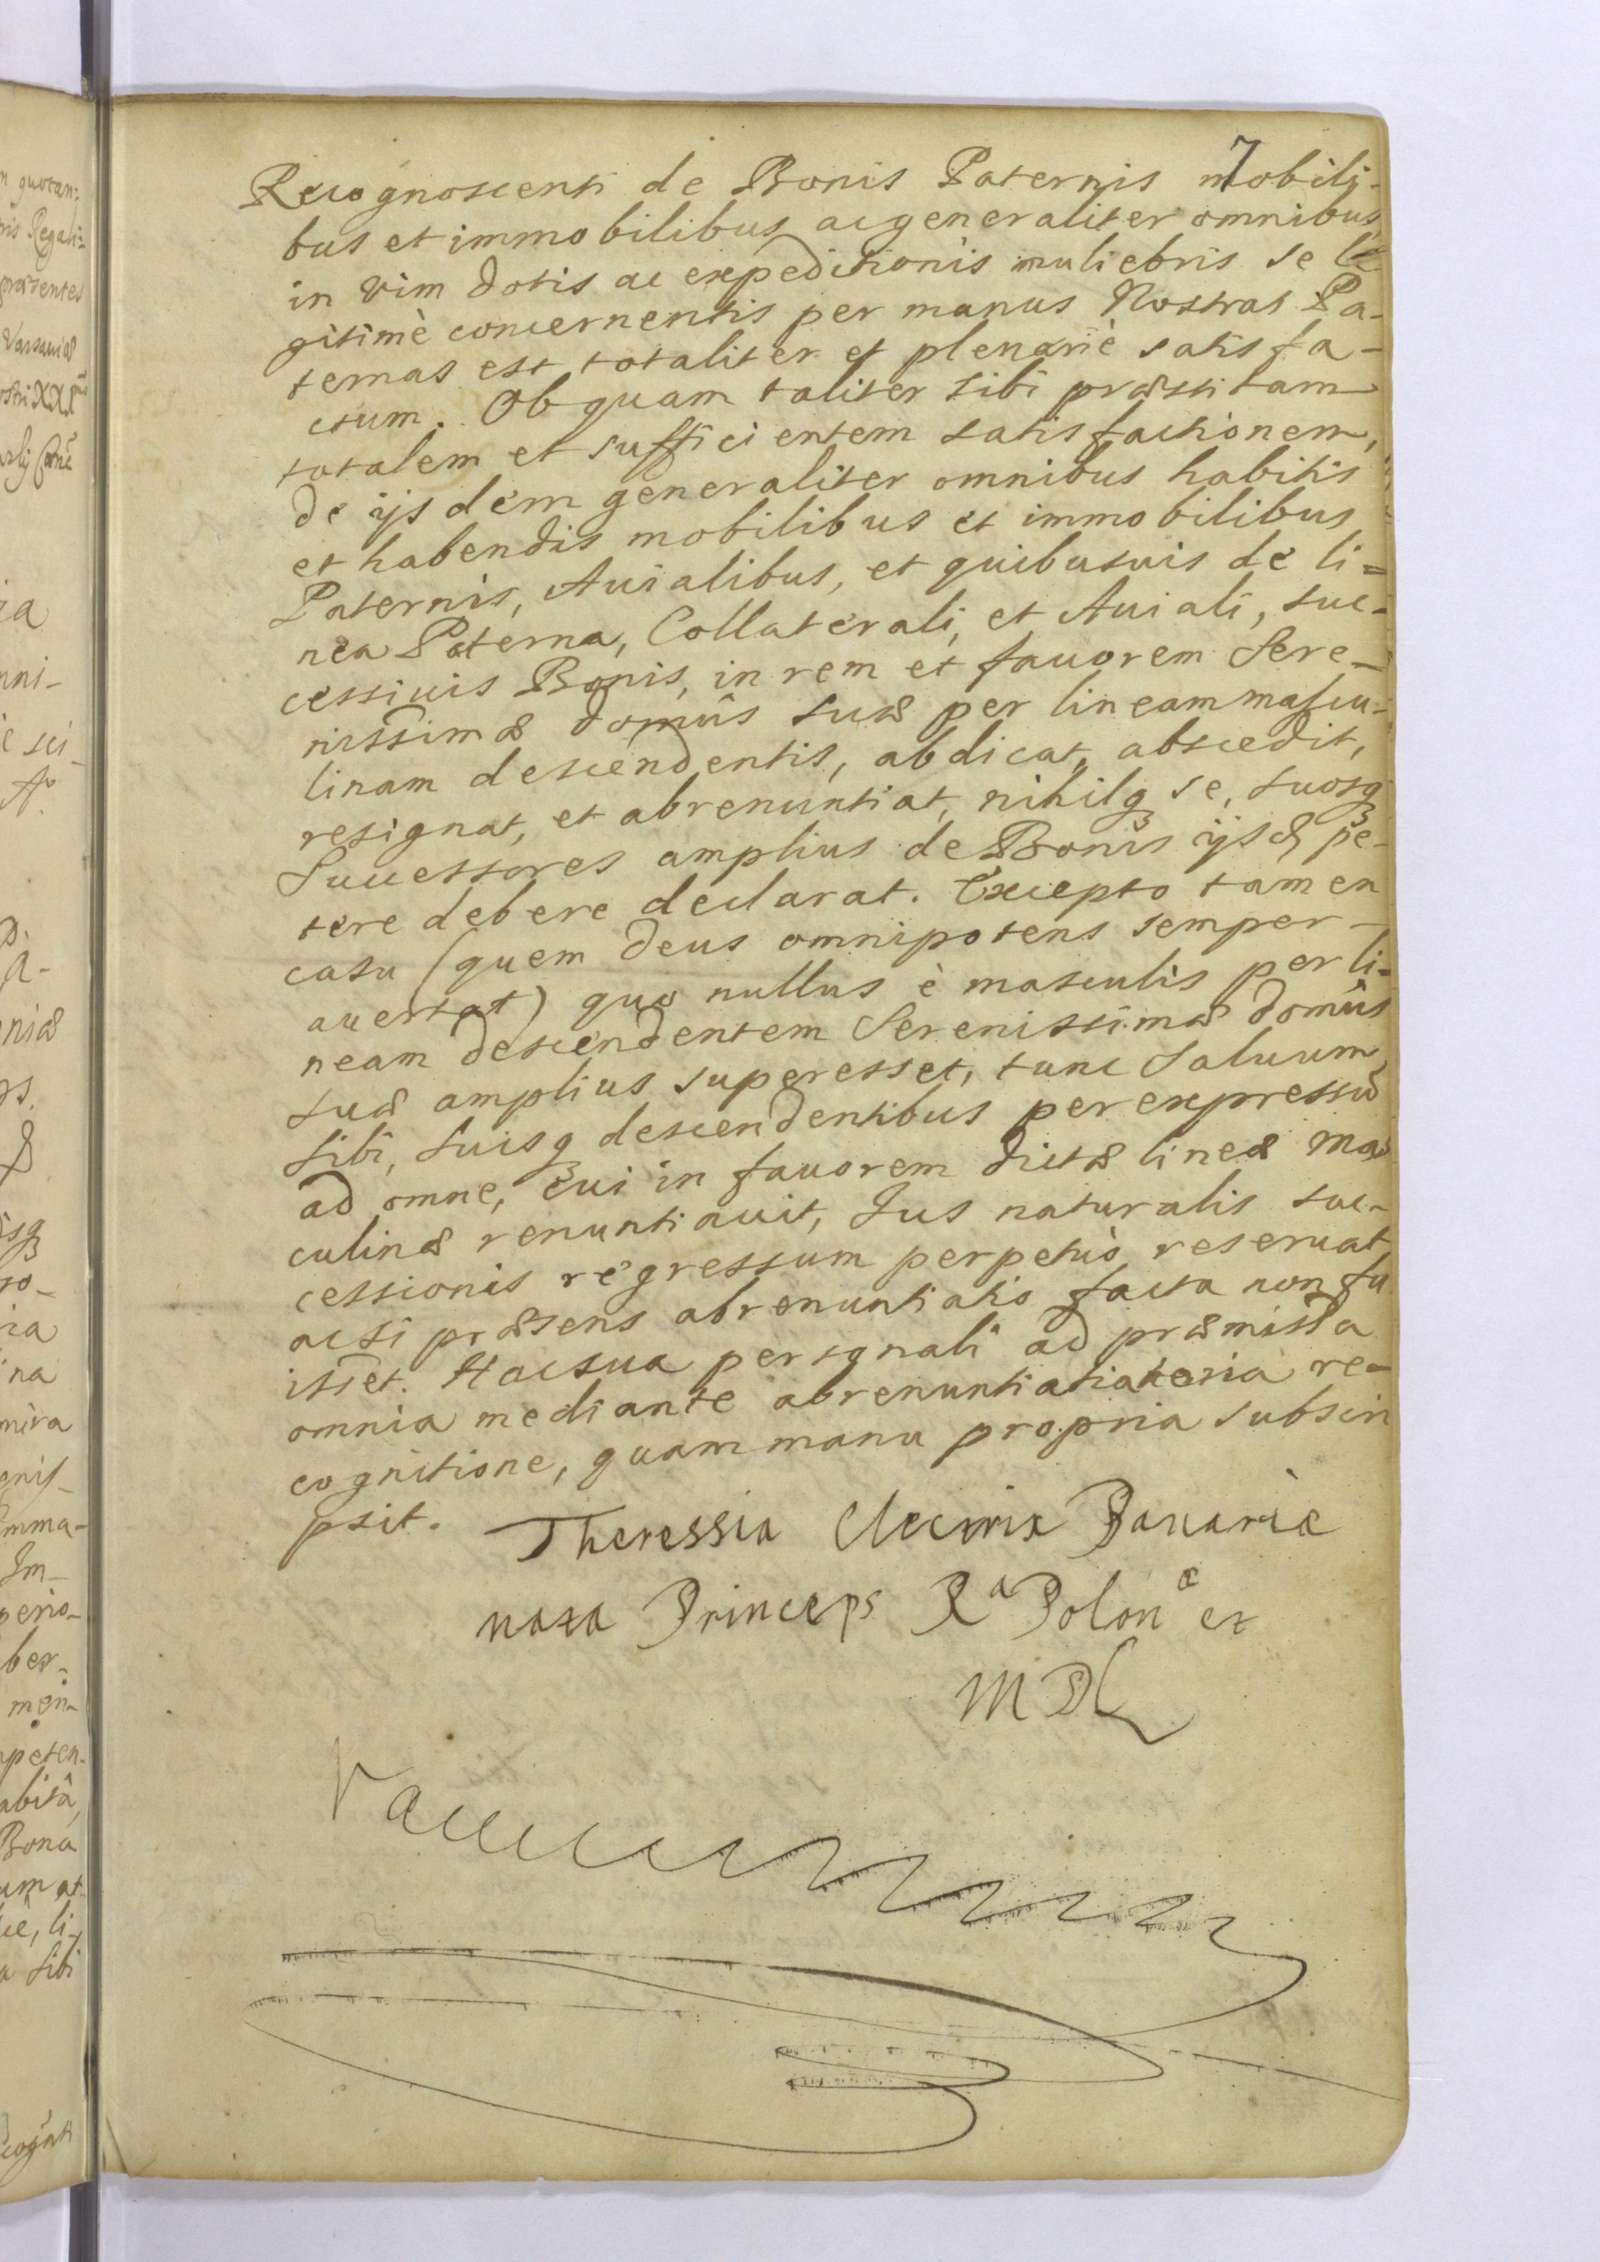 7
Recognoscenti de Bonis Paternis mobili-
bus et immobilibus ac generaliter omnibus
in vim dotis ac expeditionis muliebris se le
gitimè concernentis per manus Nostras Pa-
ternas est totaliter et plenariè satisfa-
ctum. Ob quam taliter sibi præstitam
totalem et sufficientem satisfactionem,
de ijsdem generaliter omnibus habitis
et habendis mobilibus et immobilibus
Paternis, Auialibus, et quibusuis de li=
nea Paterna, Collaterali, et Auiali, suc-
cessiuis Bonis, in rem et fauorem Sere-
nissimæ domûs suæ per lineam mascu-
linam descendentis, abdicat, abscedit,
resignat, et abrenuntiat, nihilq se, suosq
Successores amplius de Bonis ijsd pe-
tere debere declarat. Excepto tamen
casu (quem Deus omnipotens semper
auertat) quo nullus è masculis per li-
neam descendentem Serenissimæ domûs
suæ amplius superesset, tunc saluum
sibi, suisq descendentibus per expressū
ad omne, cui in fauorem dictæ lineæ mas
culinæ renuntiauit, Jus naturalis suc-
cessionis regressum perpetuò reseruat
acsi præsens abrenuntiatio facta non fu
isset. Hac sua personali ad præmissa
omnia mediante abrenuntiatoria re-
cognitione, quam manu propria subscri
psit.
Theressia Electrix Bauariæ
nata Princeps Rª Polonæ et
MDL
n quotan:
nis Regali=
præsentes
Varsauiæ
ia
nni-
niæ
na
mira
Imma-
Im-
ber-
peten-
abitâ,
Bona
um at
li-
sibi